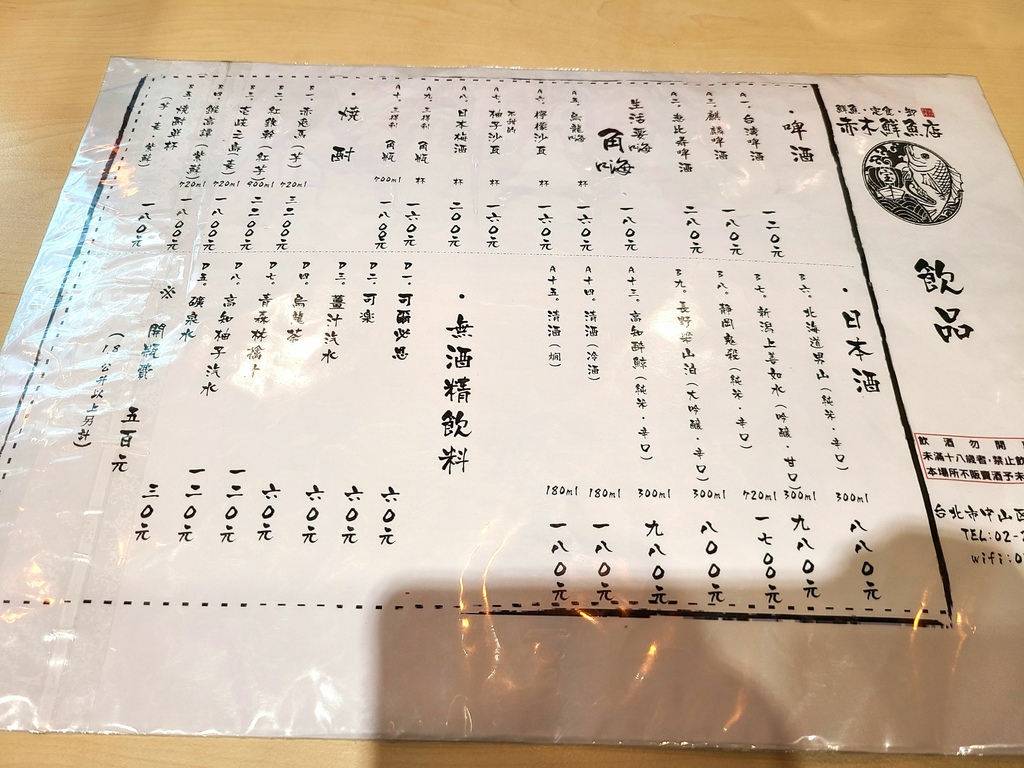 鮮魚・定食・卸
赤木鮮魚店
飲品
飲酒勿開
未滿十八歲者,禁止飲
本場所不販賣酒予未
台北市中山區
TEL:02-
wifi:0
・啤酒
A一。台湾啤酒 一二0元
A三。麒麟啤酒 一八0元
A二。惠比壽啤酒 二八0元
生活要嗨
角嗨 一八0元
A五。烏龍嗨 杯 一六0元
A六。檸檬沙瓦 杯 一六0元
不甜的
A七。柚子沙瓦 杯 一六0元
A八。日本梅酒 杯 二00元
A九。三得利 角瓶 杯 一六0元
A十。三得利 角瓶 700ml 一八00元
・燒酎
B一。赤兎馬(芋) 720ml 三二00元
B二。紅鉄幹(紅芋) 900ml 二二00元
B三。壱岐之島(麦) 720ml 一八00元
B四。鍛高譚(紫蘇) 720ml 一八00元
B五。燒酎單杯 一八0元
(芋、麦、紫蘇)
・日本酒
B六。北海道男山(純米・辛口) 300ml 八八0元
B七。新潟上善如水(吟釀・甘口) 300ml 九八0元
B八。靜岡鬼殺(純米・辛口) 720ml 一七00元
B九。長野梁山泊(大吟釀・辛口) 300ml 八00元
A十三。高知醉鯨(純米・辛口) 300ml 九八0元
A十四。清酒(冷酒) 180ml 一八0元
A十五。清酒(燗) 180ml 一八0元
・無酒精飲料
D一。可爾必思 六0元
D二。可樂 六0元
D三。薑汁汽水 六0元
D四。烏龍茶 六0元
D七。青森林檎汁 一二0元
D八。高知柚子汽水 一二0元
D五。礦泉水 三0元
※ 開瓶費 五百元
(1.8公升以上另計)